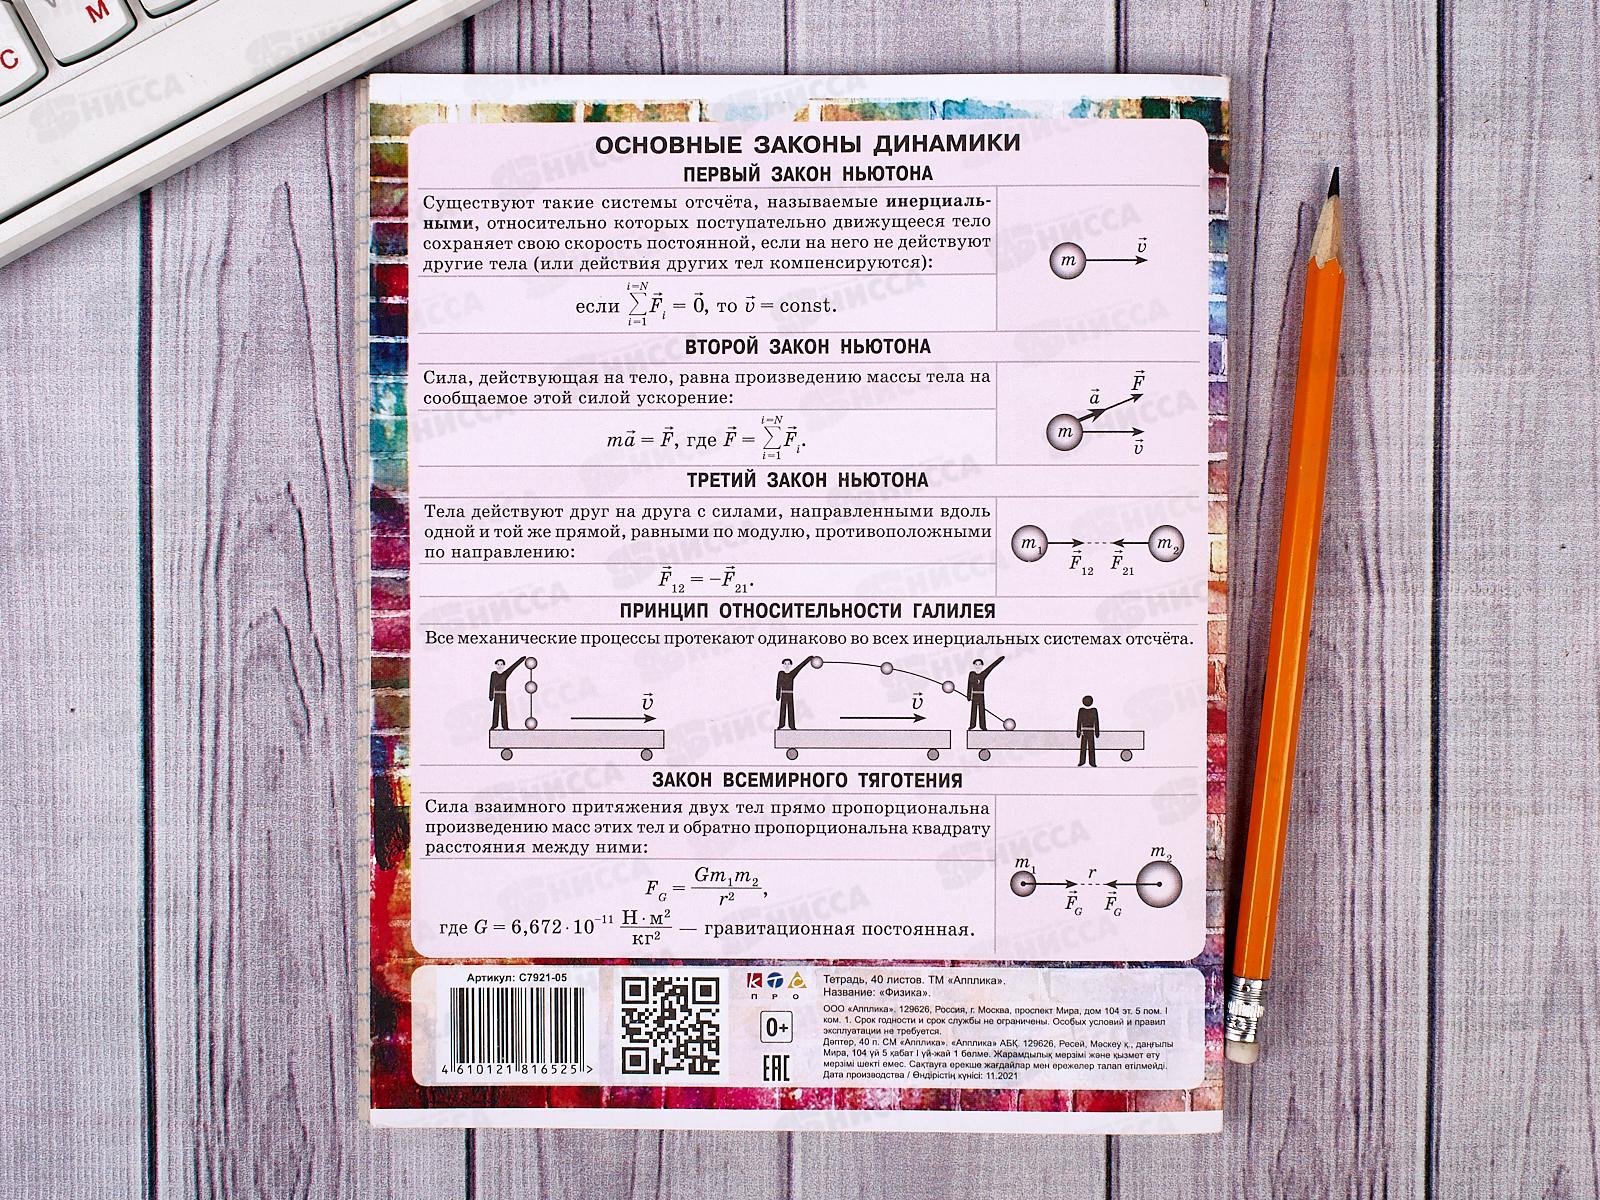 С
М
ОСНОВНЫЕ ЗАКОНЫ ДИНАМИКИ
ПЕРВЫЙ ЗАКОН НЬЮТОНА
Существуют такие системы отсчёта, называемые инерциаль-
ными, относительно которых поступательно движущееся тело
сохраняет свою скорость постоянной, если на него не действуют
другие тела (или действия других тел компенсируются):
если ∑ᵢ₌₁ⁱ⁼ᴺ F⃗ᵢ = 0⃗, то v⃗ = const.
m v⃗
ВТОРОЙ ЗАКОН НЬЮТОНА
Сила, действующая на тело, равна произведению массы тела на
сообщаемое этой силой ускорение:
ma⃗ = F⃗, где F⃗ = ∑ᵢ₌₁ⁱ⁼ᴺ F⃗ᵢ.
m a⃗ F⃗ v⃗
ТРЕТИЙ ЗАКОН НЬЮТОНА
Тела действуют друг на друга с силами, направленными вдоль
одной и той же прямой, равными по модулю, противоположными
по направлению:
F⃗₁₂ = –F⃗₂₁.
m₁ F⃗₁₂ F⃗₂₁ m₂
ПРИНЦИП ОТНОСИТЕЛЬНОСТИ ГАЛИЛЕЯ
Все механические процессы протекают одинаково во всех инерциальных системах отсчёта.
v⃗ v⃗
ЗАКОН ВСЕМИРНОГО ТЯГОТЕНИЯ
Сила взаимного притяжения двух тел прямо пропорциональна
произведению масс этих тел и обратно пропорциональна квадрату
расстояния между ними:
F_G = Gm₁m₂ / r²,
где G = 6,672 · 10⁻¹¹ Н · м² / кг² — гравитационная постоянная.
m₁ r m₂
F⃗_G F⃗_G
Артикул: С7921-05
4 610121 816525 >
КТС
ПРО
0+
ЕАС
Тетрадь, 40 листов. ТМ «Апплика».
Название: «Физика».
ООО «Апплика». 129626, Россия, г. Москва, проспект Мира, дом 104 эт. 5 пом. I
ком. 1. Срок годности и срок службы не ограничены. Особых условий и правил
эксплуатации не требуется.
Дәптер, 40 п. СМ «Апплика». «Апплика» АБҚ. 129626, Ресей, Мәскеу қ., даңғылы
Мира, 104 үй 5 қабат I үй-жай 1 бөлме. Жарамдылық мерзімі және қызмет ету
мерзімі шекті емес. Сақтауға ерекше жағдайлар мен ережелер талап етілмейді.
Дата производства / Өндірістің күнісі: 11.2021
НИССА